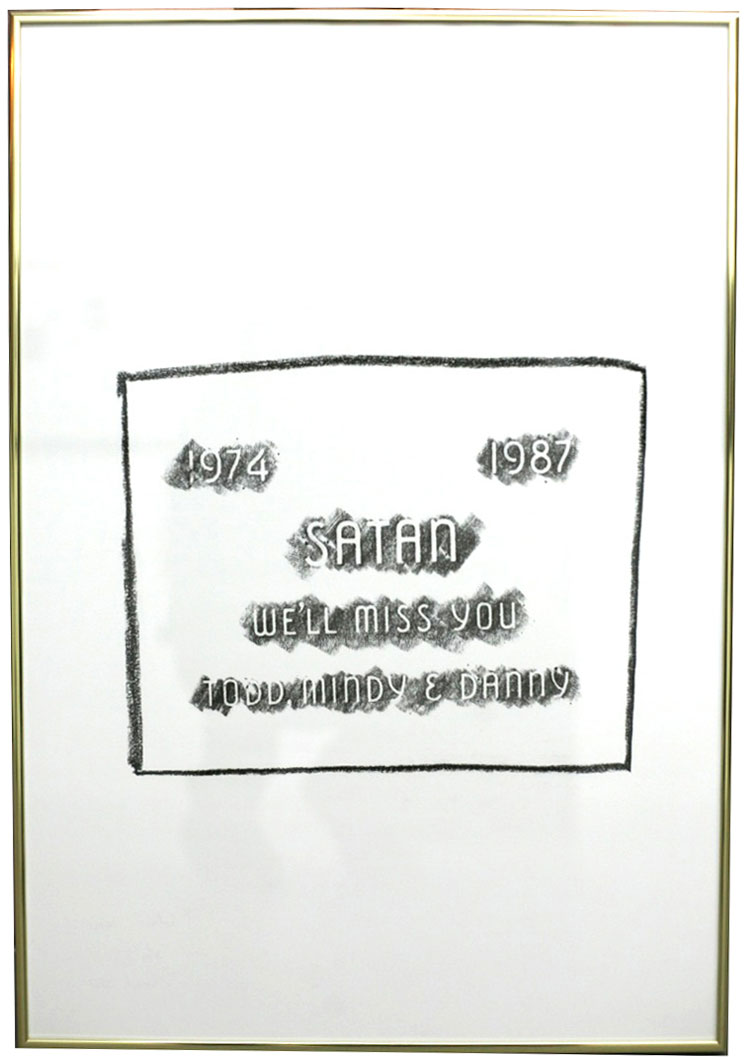 1974 1987
SATAN
WE'LL MISS YOU
TODD, MINDY & DANNY